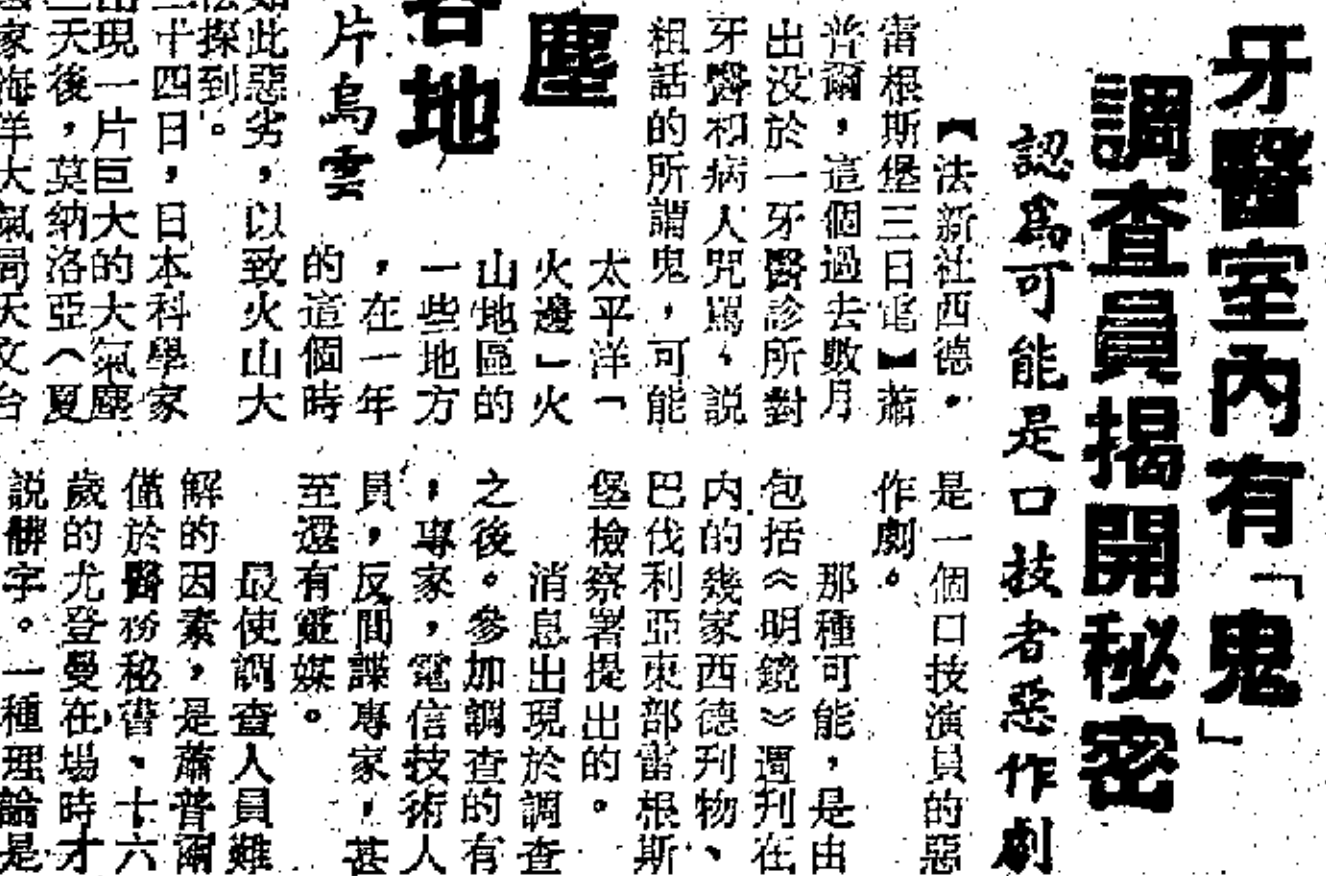 牙醫室內有「鬼」
調查員揭開秘密
認爲可能是口技者惡作劇
【法新社西德．
雷根斯堡三日電】蕭
普爾，這個過去數月
出没於一牙醫診所對
牙醫和病人咒駡、説
粗話的所謂鬼，可能
是一個口技演員的惡
作劇。
那種可能，是由
包括《明鏡》週刊在
内的幾家西德刊物、
巴伐利亞東部雷根斯
堡檢察署提出的。
消息出現於調查
之後。參加調查的有
，專家，電信技術人
員，反間諜專家，甚
至還有靈媒。
最使調查人員難
解的因素，是蕭普爾
僅於醫務秘書、十六
歲的尤登曼在場時才
説髒字。一種理論是
塵
各地
片烏雲
太平洋「
火邊」火
山地區的
一些地方
，在一年
的這個時
如此惡劣，以致火山大
法探到。
二十四日，日本科學家
出現一片巨大的大氣塵
三天後，莫納洛亞（夏
家海洋大氣局天文台